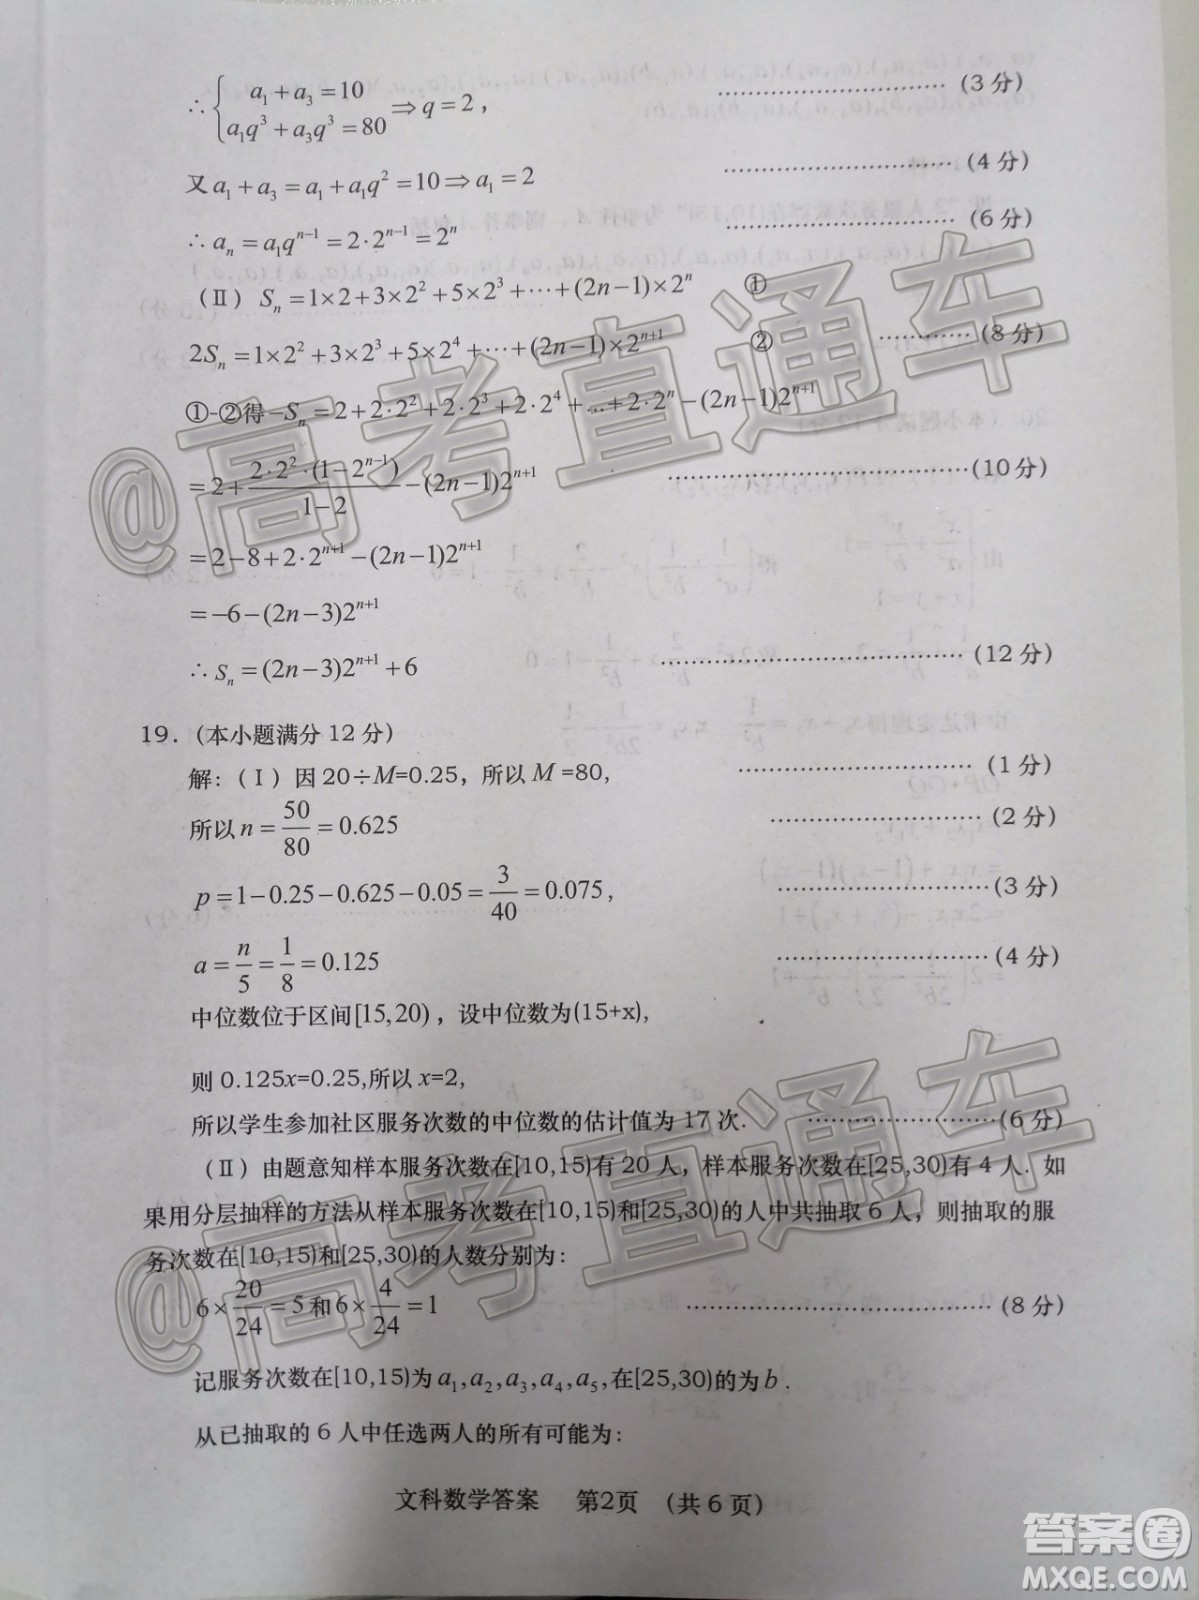 ∴ { a₁ + a₃ = 10
a₁q³ + a₃q³ = 80 ⇒ q = 2 , ………………………… (3 分)
又 a₁ + a₃ = a₁ + a₁q² = 10 ⇒ a₁ = 2 ………………………… (4 分)
∴ aₙ = a₁qⁿ⁻¹ = 2·2ⁿ⁻¹ = 2ⁿ ………………………… (6 分)
(Ⅱ) Sₙ = 1×2 + 3×2² + 5×2³ + ⋯ + (2n−1)×2ⁿ ①
2Sₙ = 1×2² + 3×2³ + 5×2⁴ + ⋯ + (2n−1)×2ⁿ⁺¹ ② ………… (8 分)
①-②得 −Sₙ = 2 + 2·2² + 2·2³ + 2·2⁴ + ... + 2·2ⁿ − (2n−1)2ⁿ⁺¹
= 2 + 2·2²·(1−2ⁿ⁻¹)/(1−2) − (2n−1)2ⁿ⁺¹ ………………………… (10 分)
= 2 − 8 + 2·2ⁿ⁺¹ − (2n−1)2ⁿ⁺¹
= −6 − (2n−3)2ⁿ⁺¹
∴ Sₙ = (2n−3)2ⁿ⁺¹ + 6 ………………………… (12 分)
19. (本小题满分 12 分)
解: (Ⅰ) 因 20÷M=0.25, 所以 M =80, ………………………… (1 分)
所以 n = 50/80 = 0.625 ………………………… (2 分)
p = 1 − 0.25 − 0.625 − 0.05 = 3/40 = 0.075, ………………………… (3 分)
a = n/5 = 1/8 = 0.125 ………………………… (4 分)
中位数位于区间[15,20), 设中位数为(15+x),
则 0.125x=0.25,所以 x=2,
所以学生参加社区服务次数的中位数的估计值为 17 次. ………………………… (6 分)
(Ⅱ) 由题意知样本服务次数在[10,15)有 20 人, 样本服务次数在[25,30)有 4 人. 如
果用分层抽样的方法从样本服务次数在[10,15)和[25,30)的人中共抽取 6 人, 则抽取的服
务次数在[10,15)和[25,30)的人数分别为:
6×20/24 = 5 和 6×4/24 = 1 ………………………… (8 分)
记服务次数在[10,15)为 a₁, a₂, a₃, a₄, a₅, 在[25,30)的为 b .
从已抽取的 6 人中任选两人的所有可能为:
文科数学答案 第2页 (共 6 页)
@高考直通车
@高考直通车
答案圈
MXQE.COM